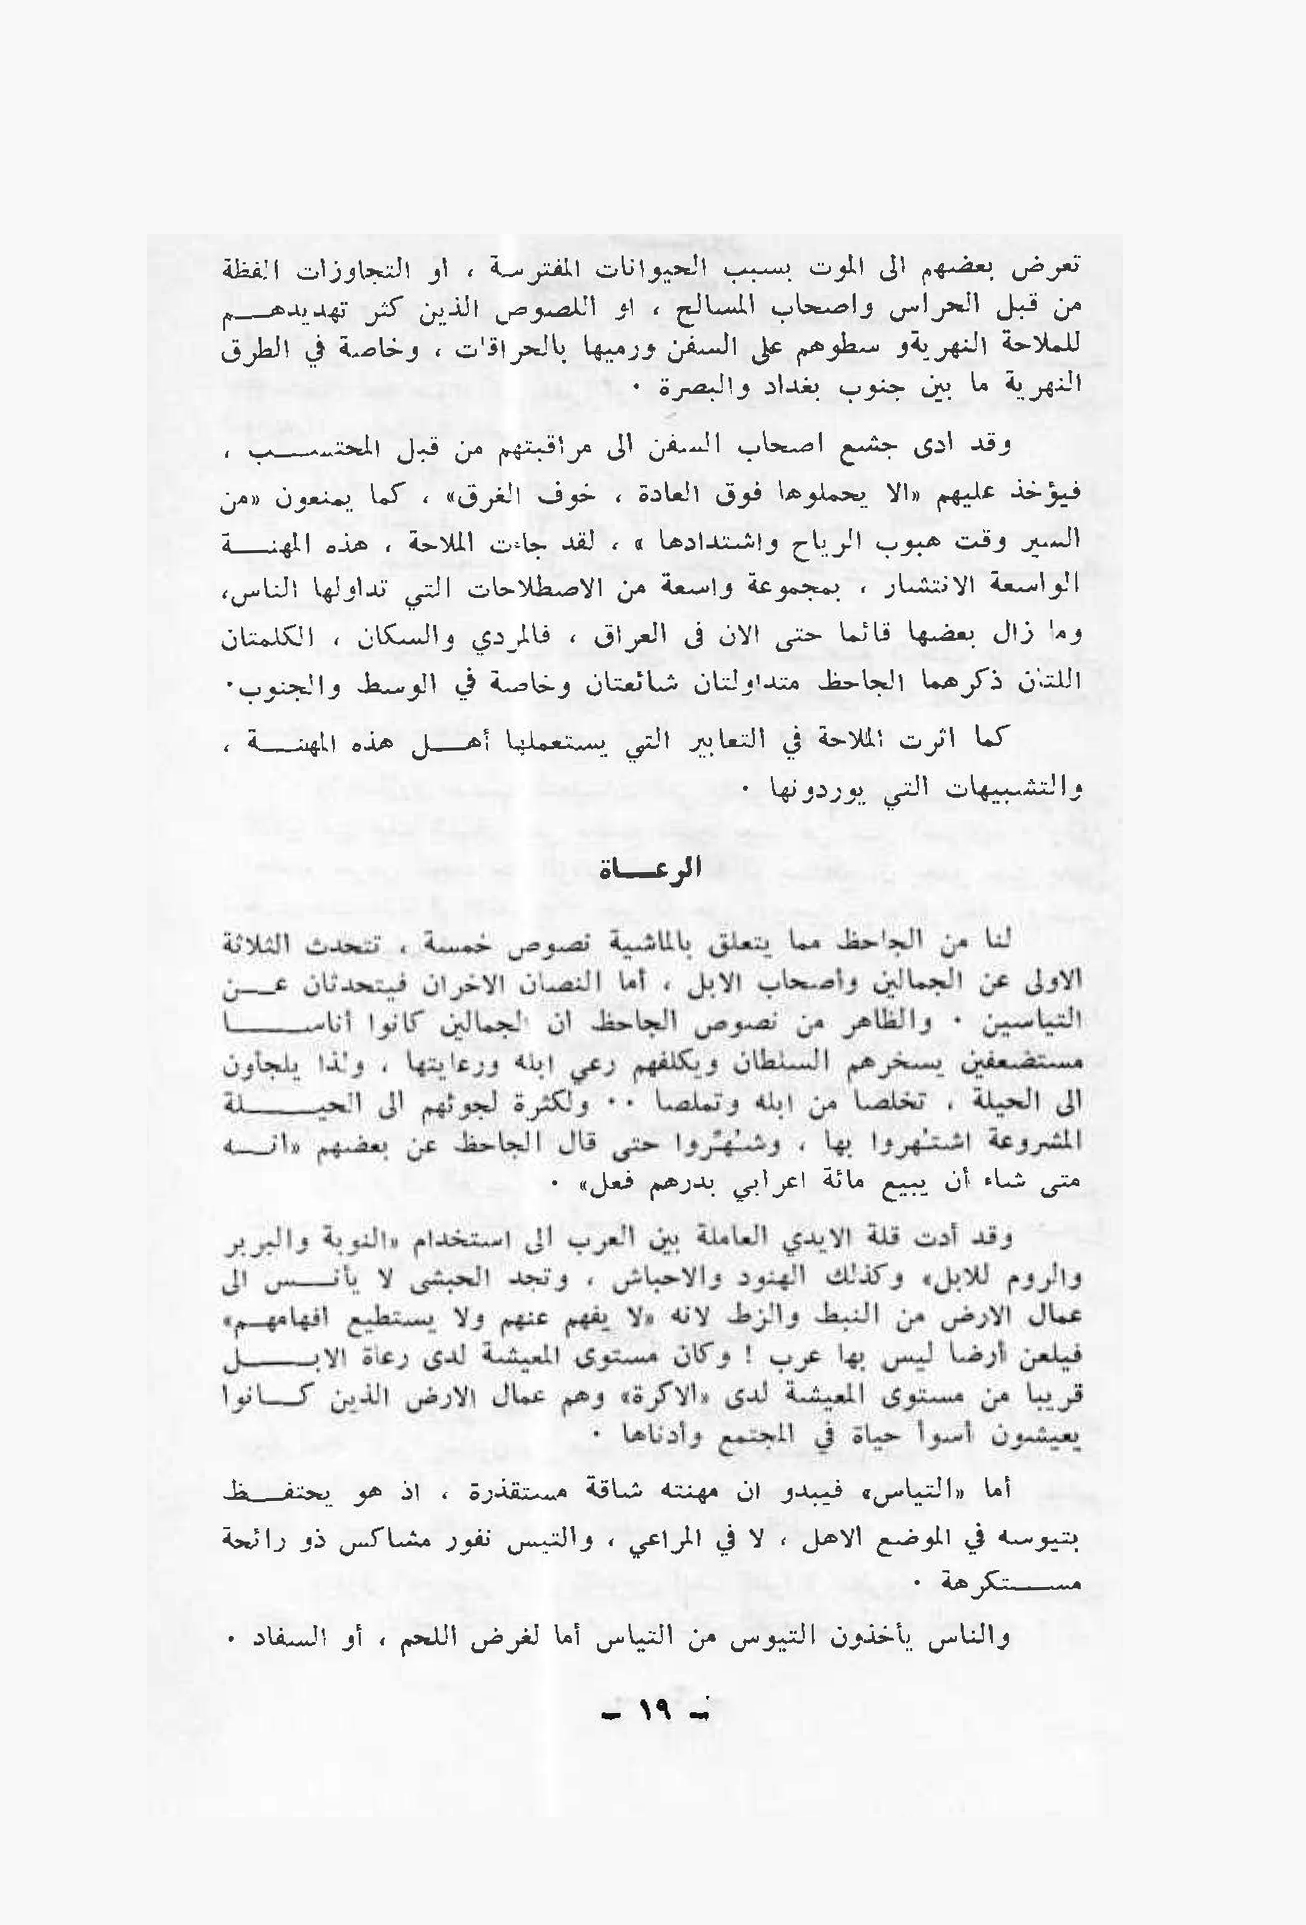 تعرض بعضهم الى الموت بسبب الحيوانات المفترسة ، او التجاوزات الفظة
من قبل الحراس واصحاب المسالح ، او اللصوص الذين كثر تهديدهم
للملاحة النهريةو سطوهم على السفن ورميها بالحراقات ، وخاصة في الطرق
النهرية ما بين جنوب بغداد والبصرة .
وقد ادى جشع اصحاب السفن الى مراقبتهم من قبل المحتسب ،
فيؤخذ عليهم «الا يحملوها فوق العادة ، خوف الغرق» ، كما يمنعون «من
السير وقت هبوب الرياح واشتدادها » ، لقد جاءت الملاحة ، هذه المهنة
الواسعة الانتشار ، بمجموعة واسعة من الاصطلاحات التي تداولها الناس،
وما زال بعضها قائما حتى الان فى العراق ، فالمردي والسكان ، الكلمتان
اللتان ذكرهما الجاحظ متداولتان شائعتان وخاصة في الوسط والجنوب.
كما اثرت الملاحة في التعابير التي يستعملها أهل هذه المهنة ،
والتشبيهات التي يوردونها .
الرعاة
لنا من الجاحظ مما يتعلق بالماشية نصوص خمسة ، تتحدث الثلاثة
الاولى عن الجمالين وأصحاب الابل ، أما النصان الاخران فيتحدثان عن
التياسين . والظاهر من نصوص الجاحظ ان الجمالين كانوا أناسا
مستضعفين يسخرهم السلطان ويكلفهم رعي ابله ورعايتها ، ولذا يلجأون
الى الحيلة ، تخلصا من ابله وتملصا .. ولكثرة لجوئهم الى الحيلة
المشروعة اشتُهروا بها ، وشُهِّروا حتى قال الجاحظ عن بعضهم «انه
متى شاء أن يبيع مائة اعرابي بدرهم فعل» .
وقد أدت قلة الايدي العاملة بين العرب الى استخدام «النوبة والبربر
والروم للابل» وكذلك الهنود والاحباش ، وتجد الحبشى لا يأنس الى
عمال الارض من النبط والزط لانه «لا يفهم عنهم ولا يستطيع افهامهم»
فيلعن أرضا ليس بها عرب ! وكان مستوى المعيشة لدى رعاة الابل
قريبا من مستوى المعيشة لدى «الاكرة» وهم عمال الارض الذين كانوا
يعيشون أسوأ حياة في المجتمع وأدناها .
أما «التياس» فيبدو ان مهنته شاقة مستقذرة ، اذ هو يحتفظ
بتيوسه في الموضع الاهل ، لا في المراعي ، والتيس نفور مشاكس ذو رائحة
مستكرهة .
والناس يأخذون التيوس من التياس أما لغرض اللحم ، أو السفاد .
– ١٩ –